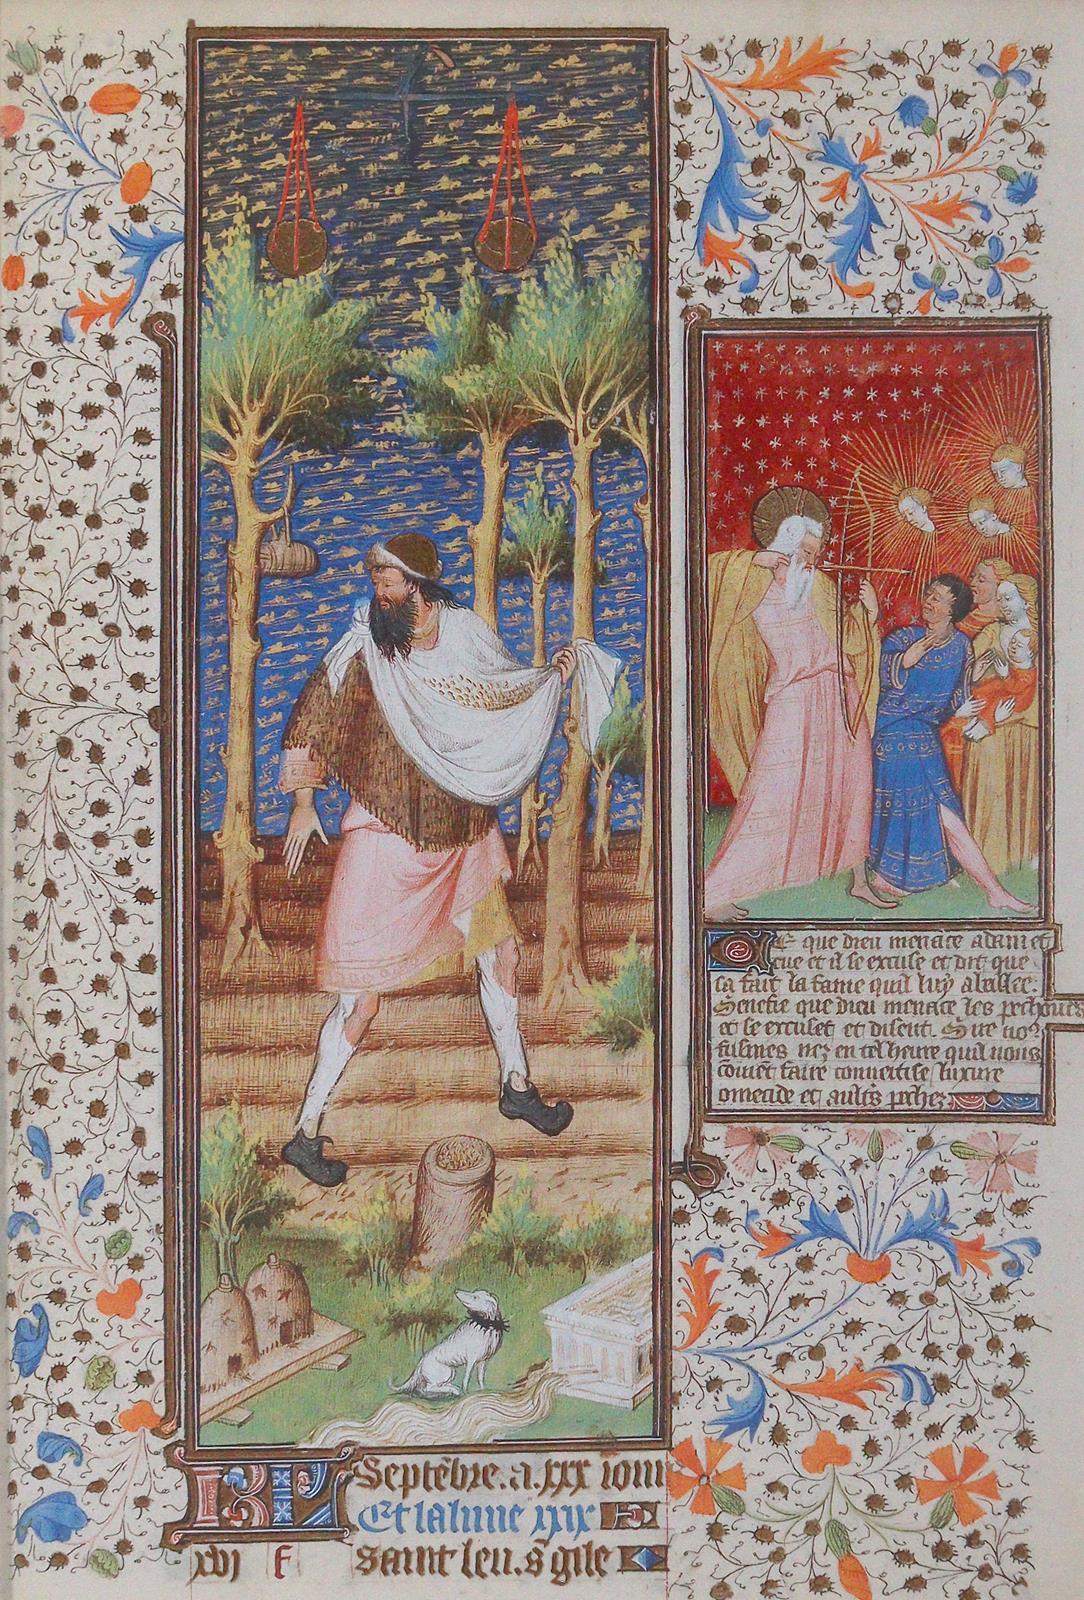 Ce que dieu menace adam et
eue et il se excuse et dit que
ca fait la fame quil luy a baillee.
Senefie que dieu menace les pecheurs
et se excuset et disent. Que no9
fusmes nez en tel heure quil nous
couiet faire conuoitise luxure
omecide et aultrs pechez
KL Septebre. a. xxx iours
Et la lune xxix
xvi f saint leu. s gile